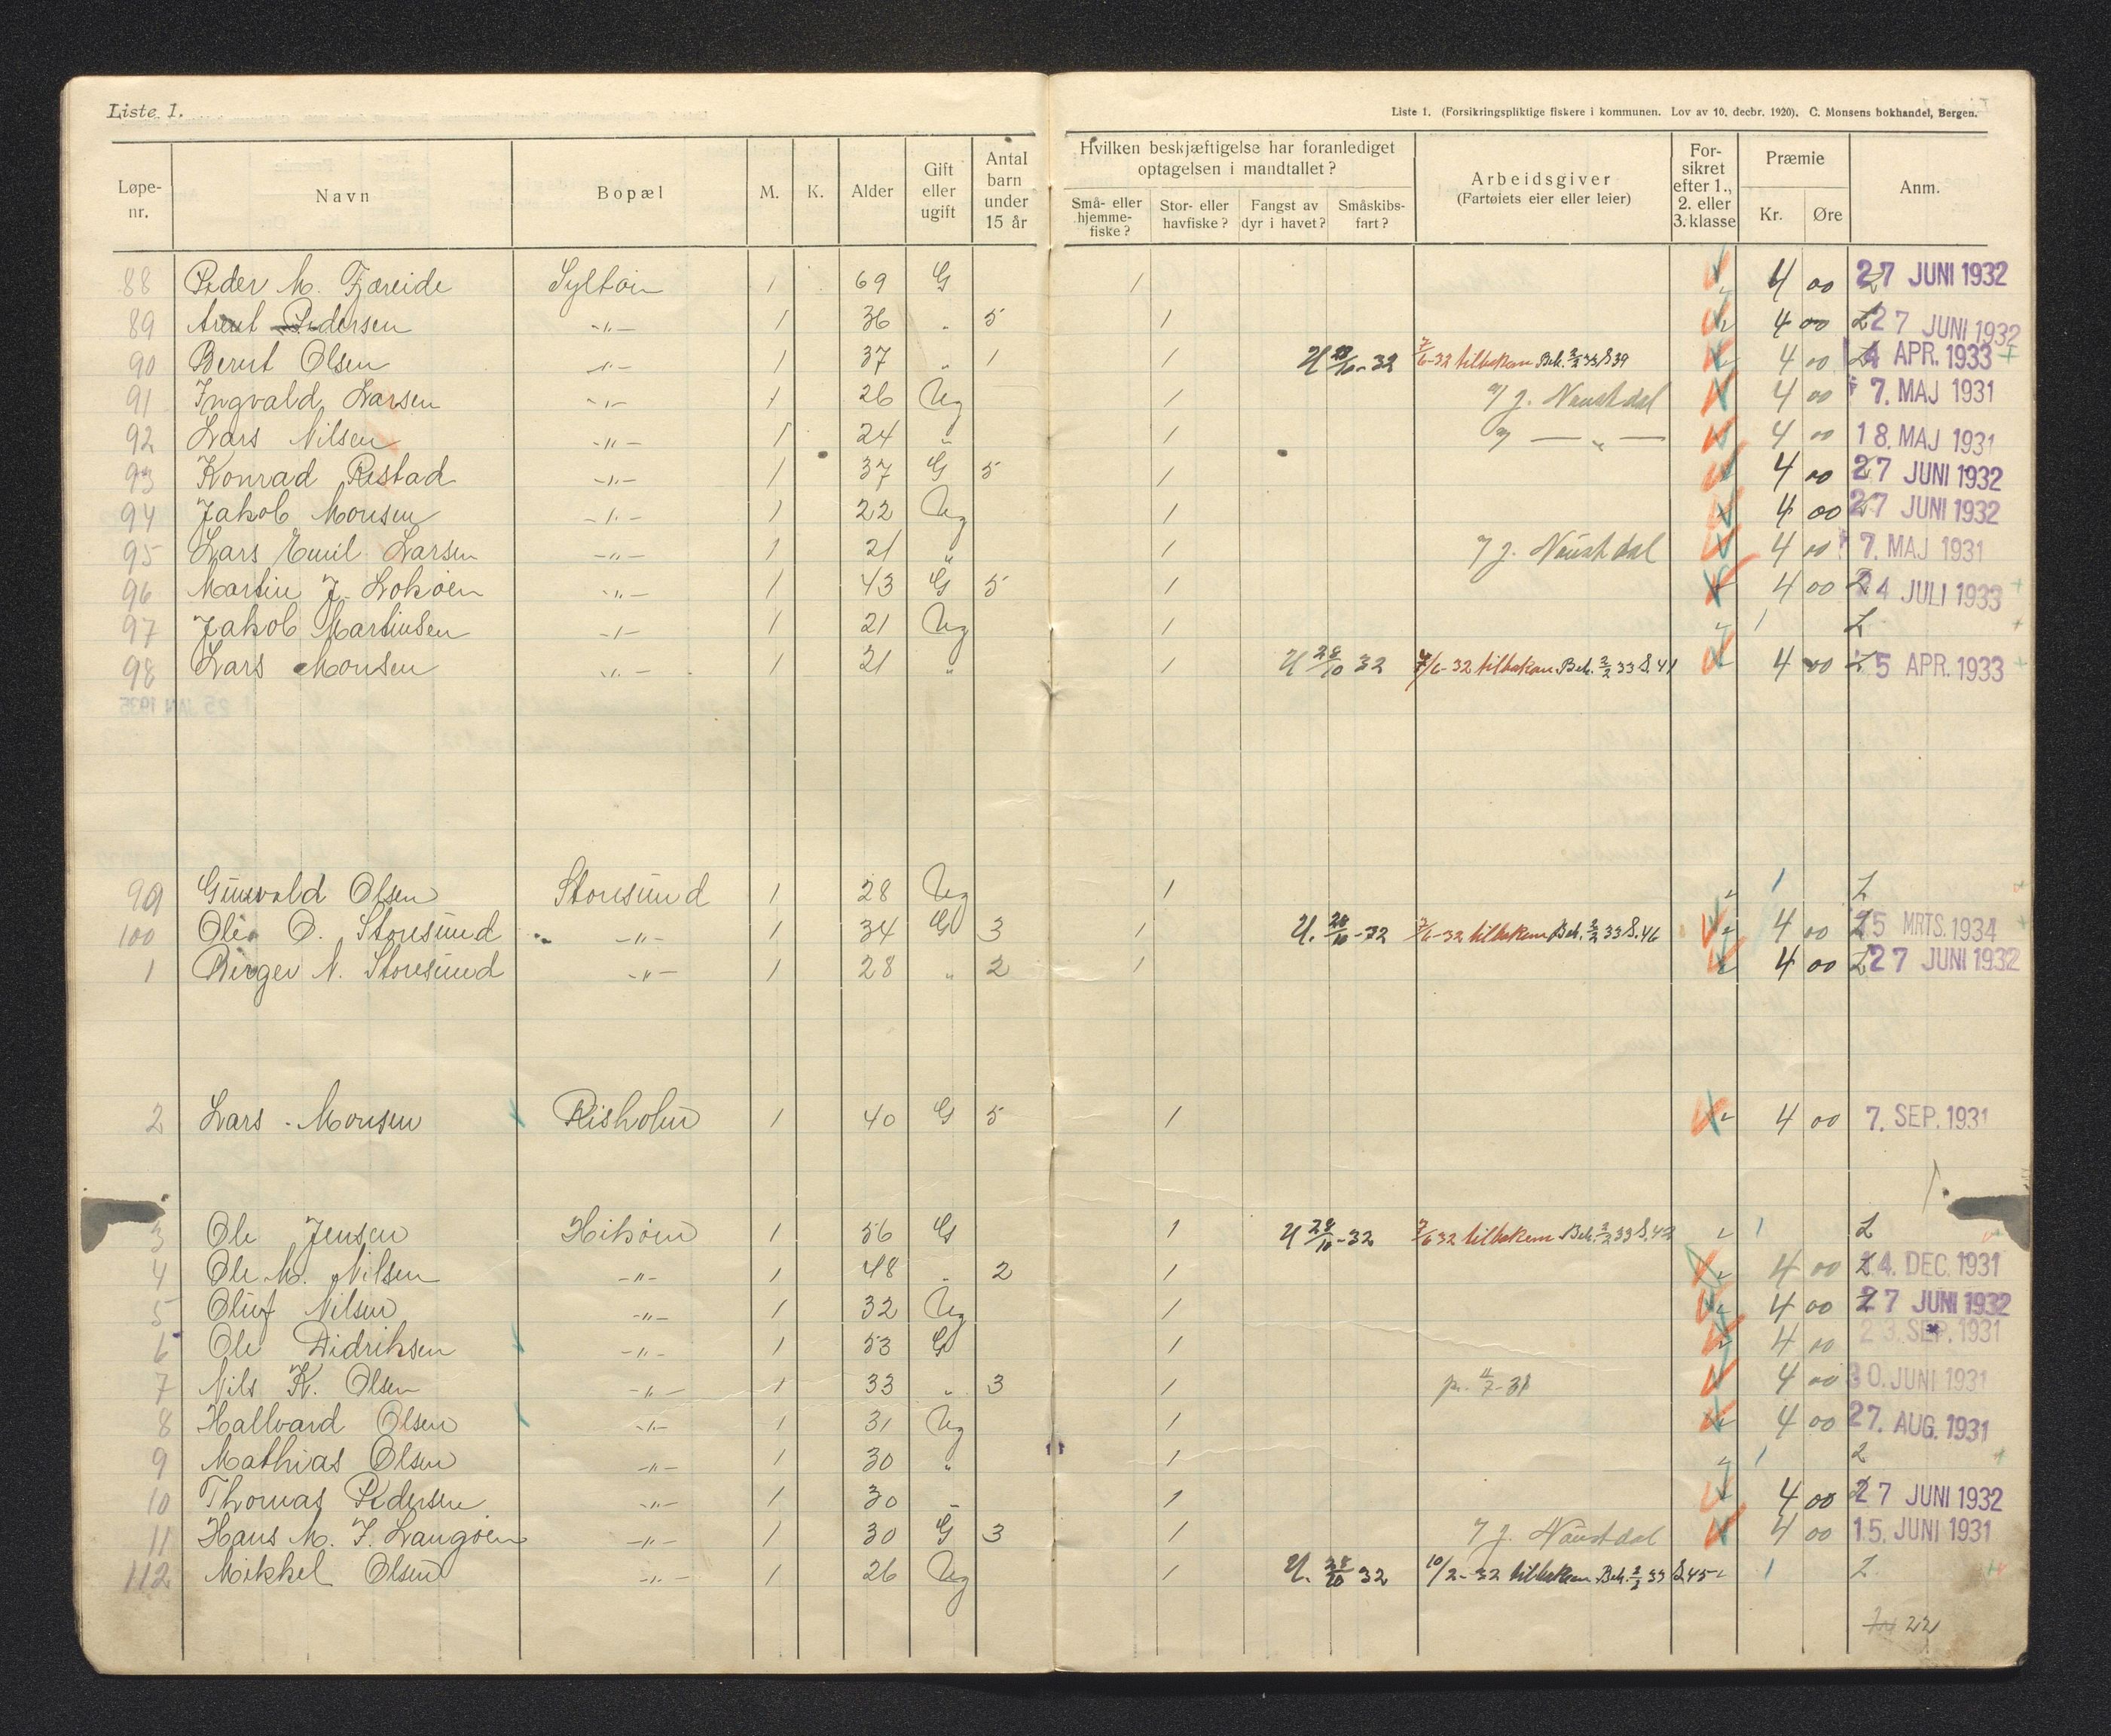 Liste 1.
Liste 1. (Forsikringspliktige fiskere i kommunen. Lov av 10. decbr. 1920). C. Monsens bokhandel, Bergen.
Løpe-nr. Navn Bopæl M. K. Alder Gift eller ugift Antal barn under 15 år Hvilken beskjæftigelse har foranlediget optagelsen i mandtallet? Små- eller hjemme-fiske? Stor- eller havfiske? Fangst av dyr i havet? Småskibs-fart? Arbeidsgiver (Fartøiets eier eller leier) For-sikret efter 1., 2. eller 3. klasse Præmie Kr. Øre Anm.
88 Peder M. Fjæreide Syltøin 1 69 G 1 4 00 27 JUNI 1932
89 Arent Pedersen -"- 1 36 " 5 1 4 00 27 JUNI 1932
90 Bernt Olsen -"- 1 37 " 1 1 4 00 4 APR. 1933 +
91 Ingvald Larsen -"- 1 26 Ug 1 J. Naustdal 4 00 7. MAJ 1931
92 Lars Nilsen -"- 1 24 " 1 — " — 4 00 18. MAJ 1931
93 Konrad Restad -"- 1 37 G 5 1 4 00 27 JUNI 1932
94 Jakob Monsen -"- 1 22 Ug 1 4 00 27 JUNI 1932
95 Lars Emil Larsen -"- 1 21 " 1 J. Naustdal 4 00 7. MAJ 1931
96 Martin J. Lokøen -"- 1 43 G 5 1 4 00 24 JULI 1933 +
97 Jakob Martinsen -"- 1 21 Ug 1 1 L +
98 Lars Monsen -"- 1 21 " 1 U 28/10 32 7/6-32 tilbakem Beh. 2/2 33 S. 41 4 00 5 APR. 1933 +
99 Gunvald Olsen Storesund 1 28 Ug 1 1 L
100 Ole O. Storesund -"- 1 34 G 3 1 7/6-32 tilbakem Beh. 2/2 33 S. 46 4 00 25 MRTS. 1934 +
1 Birger N. Storesund -"- 1 28 " 2 1 4 00 27 JUNI 1932
2 Lars Monsen Risholm 1 40 G 5 1 4 00 7. SEP. 1931
3 Ole Jensen 1 56 G 1 U 28/10-32 7/6 32 tilbakem Beh. 2/2 33 1 L
4 Ole M. Nilsen -"- 1 48 " 2 1 4 00 DEC. 1931
5 Oluf Nilsen -"- 1 32 Ug 1 4 00 27 JUNI 1932
6 Ole Didriksen -"- 1 53 G 1 4 00 23. SEP. 1931
7 Nils K. Olsen -"- 1 33 " 3 1 4 00 30. JUNI 1931
8 Hallvard Olsen -"- 1 31 Ug 1 4 00 27. AUG. 1931
9 Mathias Olsen -"- 1 30 " 1 1 L +
10 Thomas Pedersen -"- 1 30 " 1 4 00 27 JUNI 1932
11 Hans M. J. Langøen -"- 1 30 G 3 1 J. Naustdal 4 00 15. JUNI 1931
112 Mikkel Olsen -"- 1 26 Ug 1 U. 28/10 32 10/2-32 tilbakem Beh. 2/2 33 S. 45 1 L
22